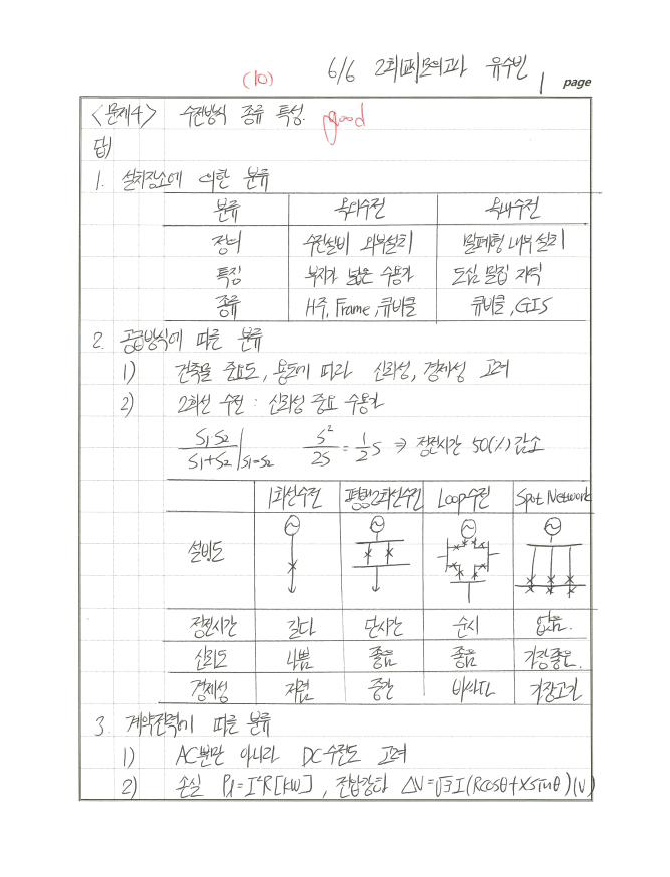 (10) 6/6 2회(교시)모의고사 유수빈 1 page
<문제4> 수전방식 종류 특성. good
답)
1. 설치장소에 의한 분류
분류 옥외수전 옥내수전
정의 수전설비 외부설치 밀폐형 내부 설치
특징 부지가 넓은 수용가 도심 밀집 지역
종류 H주, Frame, 큐비클 큐비클, GIS
2. 공급방식에 따른 분류
1) 건축물 중요도, 용도에 따라 신뢰성, 경제성 고려
2) 2회선 수전 : 신뢰성 중요 수용가
S1 S2 / S1+S2 | S1=S2 S² / 2S = 1/2 S ⇒ 정전시간 50(%) 감소
1회선수전 평행2회선수전 Loop수전 Spot Network
설비도
정전시간 길다 단시간 순시 없음.
신뢰도 나쁨 좋음 좋음 가장좋은.
경제성 저렴 중간 비싸다 가장고가
3. 계약전력에 따른 분류
1) AC뿐만 아니라 DC수전도 고려
2) 손실 Pl=I²R[kW], 전압강하 ΔV=√3 I(Rcosθ+Xsinθ)(V)